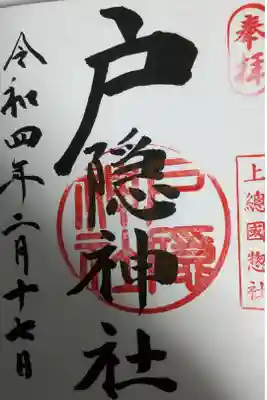 奉拝
上總國惣社
戸隠神社
戸隠神社
令和四年二月十七日